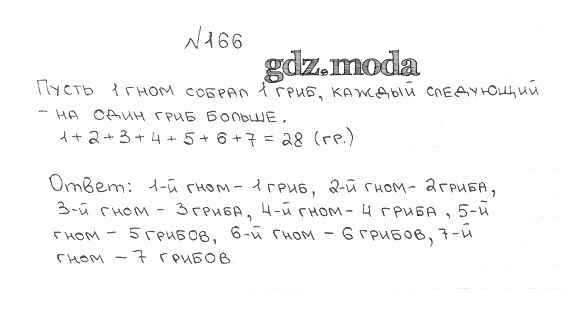 №166
gdz.moda
Пусть 1 гном собрал 1 гриб, каждый следующий
– на один гриб больше.
1+2+3+4+5+6+7=28 (гр.)
Ответ: 1-й гном – 1 гриб, 2-й гном – 2 гриба,
3-й гном – 3 гриба, 4-й гном – 4 гриба, 5-й
гном – 5 грибов, 6-й гном – 6 грибов, 7-й
гном – 7 грибов